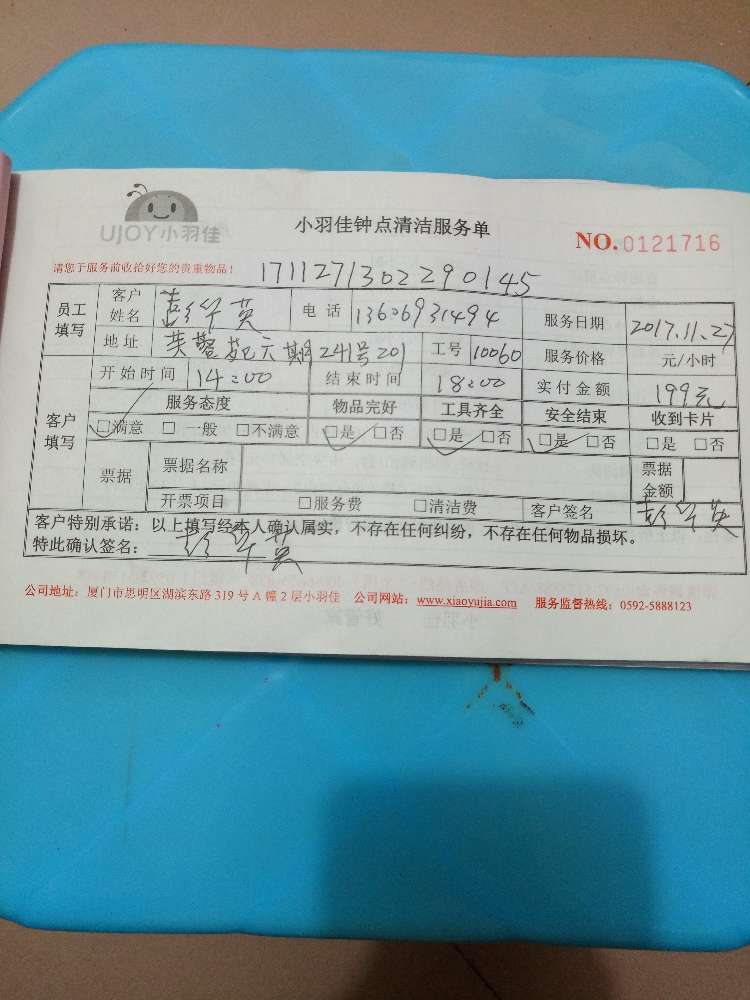 UJOY小羽佳
小羽佳钟点清洁服务单
NO.0121716
请您于服务前收拾好您的贵重物品！
1711271302290145
员工填写 客户姓名 彭华英 电话 13606931494 服务日期 2017.11.27
地址 芙蓉苑六期241号201 工号 10060 服务价格 元/小时
客户填写 开始时间 14:00 结束时间 18:00 实付金额 199元
服务态度 物品完好 工具齐全 安全结束 收到卡片
☑满意 □一般 □不满意 ☑是 □否 ☑是 □否 ☑是 □否 □是 □否
票据 票据名称 票据金额
开票项目 □服务费 □清洁费 客户签名 彭华英
客户特别承诺：以上填写经本人确认属实，不存在任何纠纷，不存在任何物品损坏。
特此确认签名：彭华英
公司地址：厦门市思明区湖滨东路 319 号 A 幢 2 层小羽佳 公司网站：www.xiaoyujia.com 服务监督热线：0592-5888123